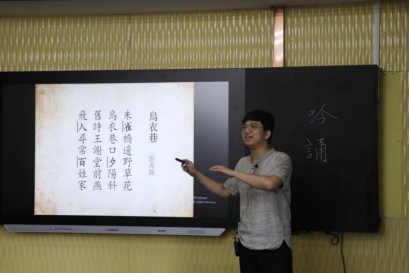 烏衣巷
劉禹錫
朱雀橋邊野草花
烏衣巷口夕陽斜
舊時王謝堂前燕
飛入尋常百姓家
吟誦